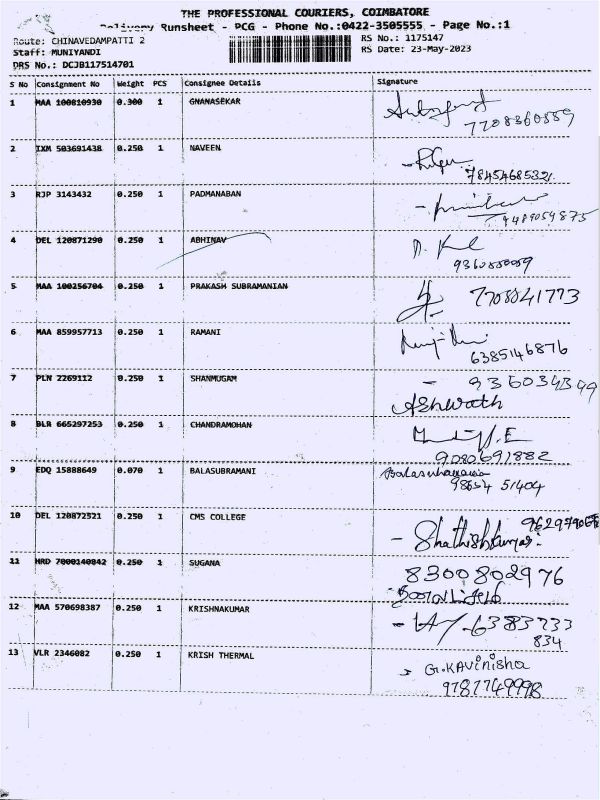 THE PROFESSIONAL COURIERS, COIMBATORE
Delivery Runsheet - PCG - Phone No.:0422-3505555 - Page No.:1
Route: CHINAVEDAMPATTI 2
Staff: MUNIYANDI
DRS No.: DCJB117514701
RS No.: 1175147
RS Date: 23-May-2023
S No Consignment No Weight PCS Consignee Details Signature
1 MAA 100810930 0.300 1 GNANASEKAR
7708360559
2 IXM 503691438 0.250 1 NAVEEN
7845468532
3 RJP 3143432 0.250 1 PADMANABAN
9489059875
4 DEL 120871290 0.250 1 ABHINAV
5 MAA 100256704 0.250 1 PRAKASH SUBRAMANIAN
7708841773
6 MAA 859957713 0.250 1 RAMANI
6385146876
7 PLN 2269112 0.250 1 SHANMUGAM
Ashwath
8 BLR 665297253 0.250 1 CHANDRAMOHAN
9080691882
9 EDQ 15888649 0.070 1 BALASUBRAMANI
98654 51404
10 DEL 120872521 0.250 1 CMS COLLEGE
Shathishkumar.
11 HRD 7000140842 0.250 1 SUGANA
8300802976
12 MAA 570698387 0.250 1 KRISHNAKUMAR
6383733
834
13 VLR 2346082 0.250 1 KRISH THERMAL
G.KAViNisha
9787749998